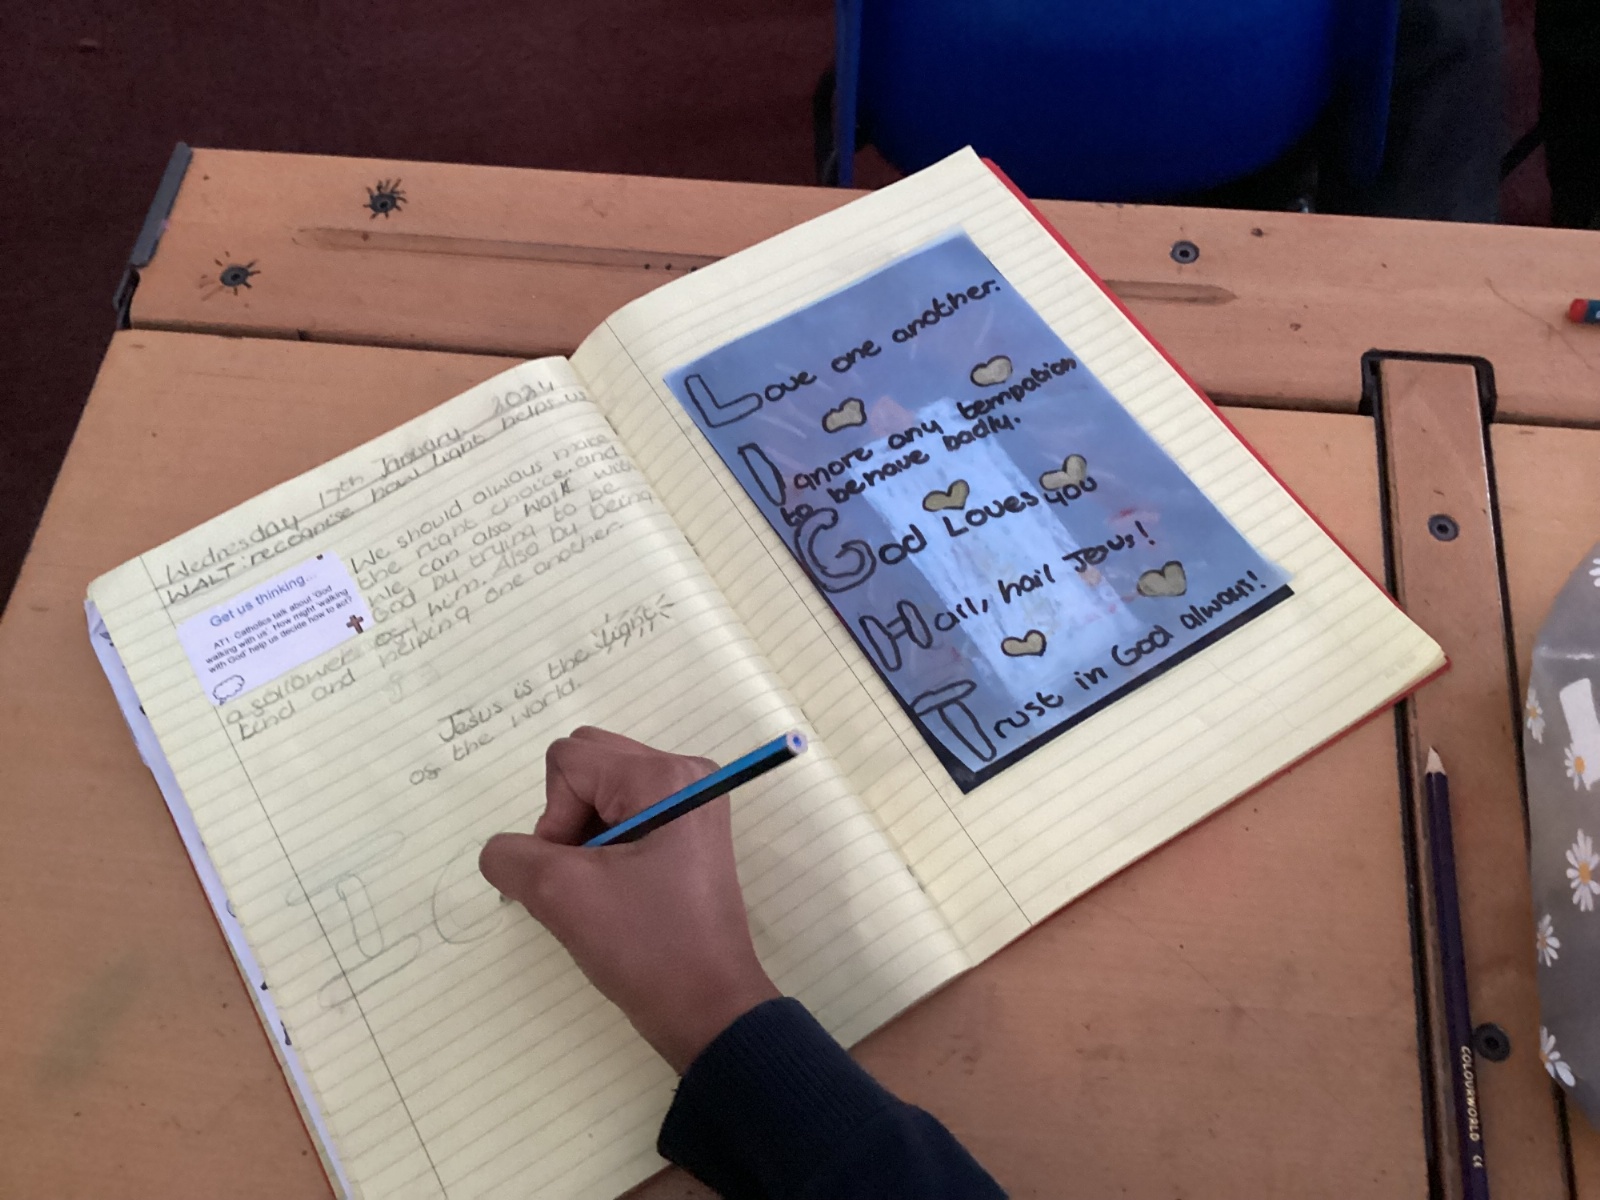 Wednesday 17th January 2024
WALT: recognise how light helps us
Get us thinking...
AT1: Catholics talk about 'God
walking with us'. How might 'walking
with God' help us decide how to act?
We should always make
the right choice and
we can also walk with
God by trying to be
a follower of him. Also by being
kind and helping one another.
Jesus is the light
of the world.
Love one another.
Ignore any tempation
to behave badly.
God Loves you
Hail, hail Jesus!
Trust in God always!
COLOURWORLD CE